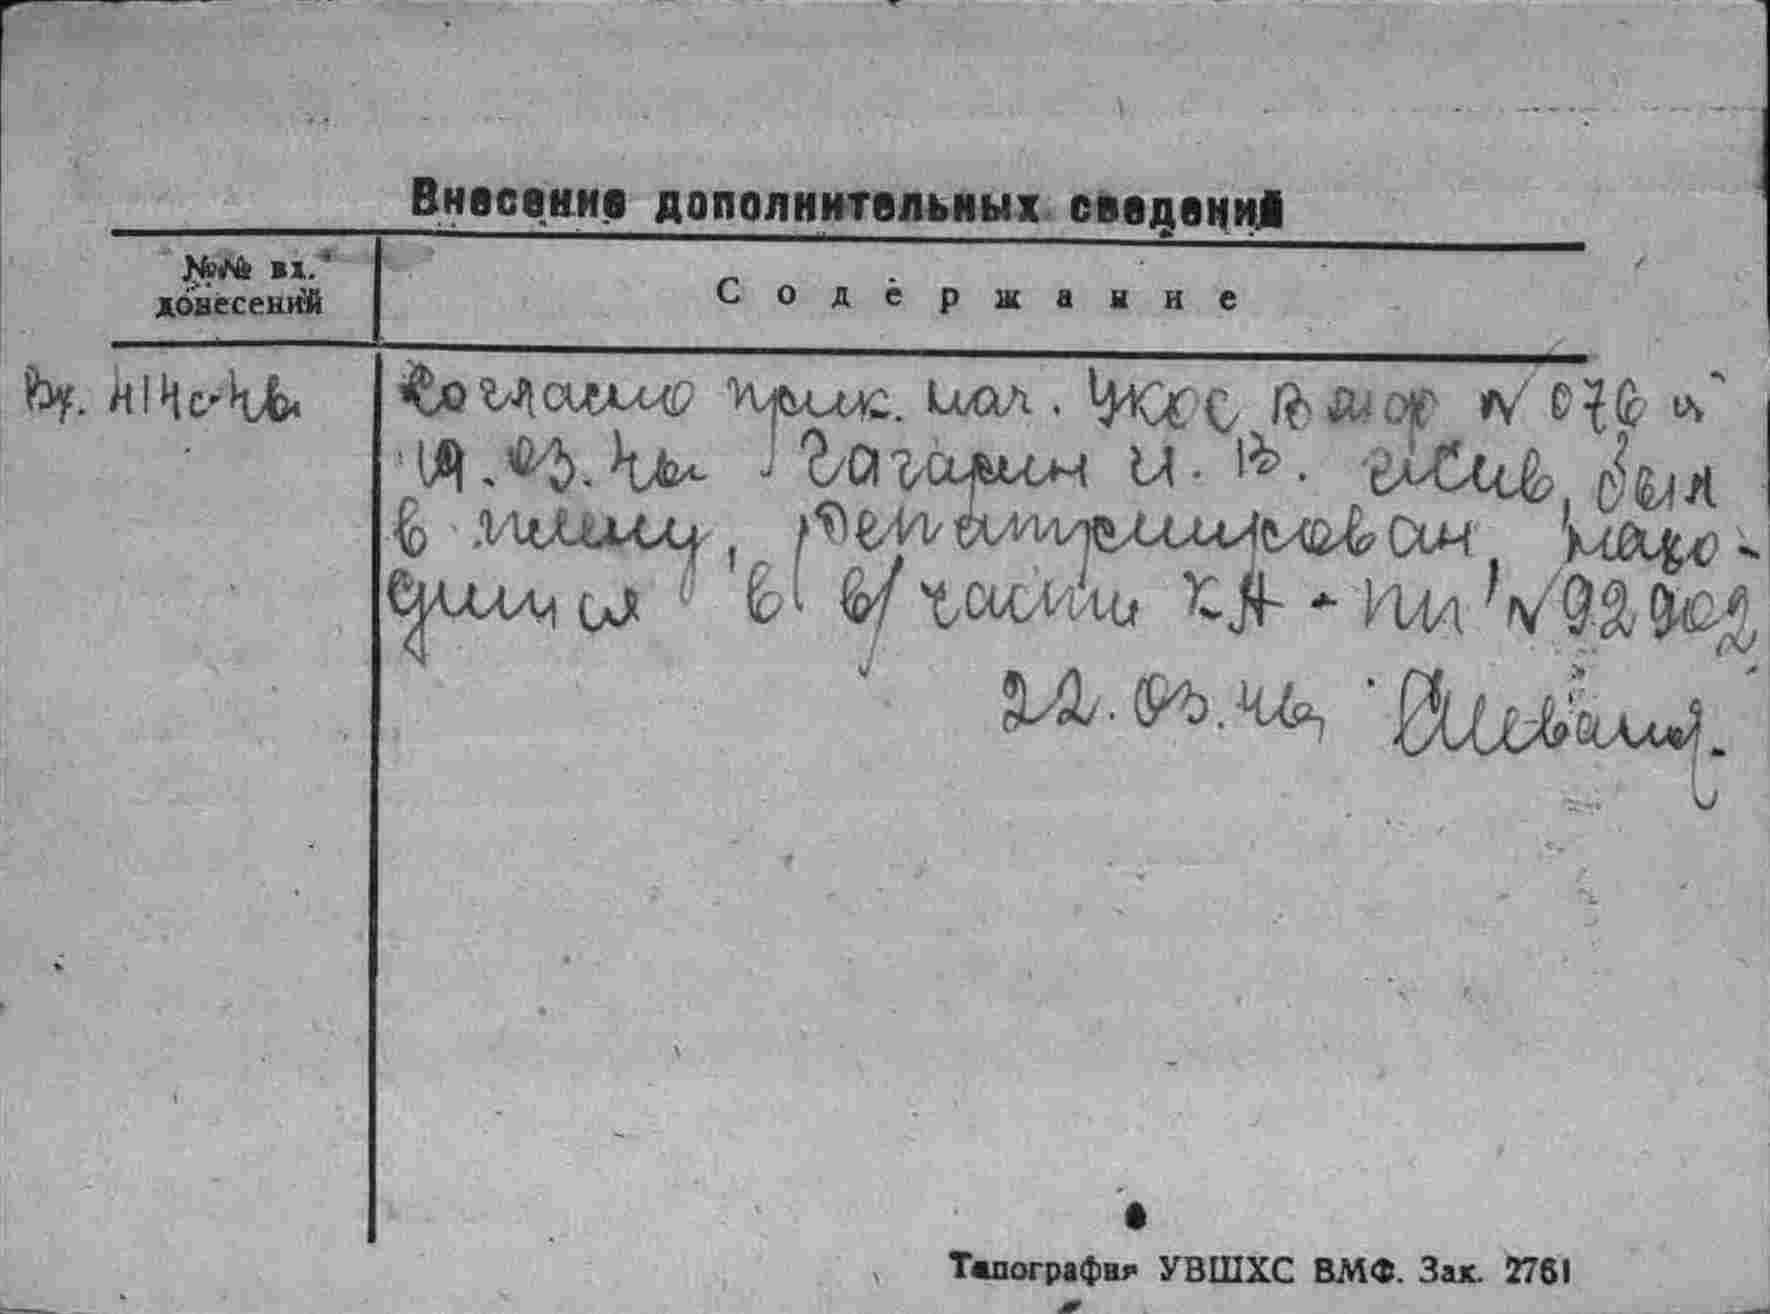 Внесение дополнительных сведений
№№ вх.
донесений
Содержание
Вх. 414с-46
Согласно прик. нач. УКОС ВМФ № 076 от
19.03.46 Гагарин И. В. жив, был
в плену, репатриирован, нахо-
дится в в/части КА - ПП № 92902
22.03.46
Типография УВШХС ВМФ. Зак. 2761